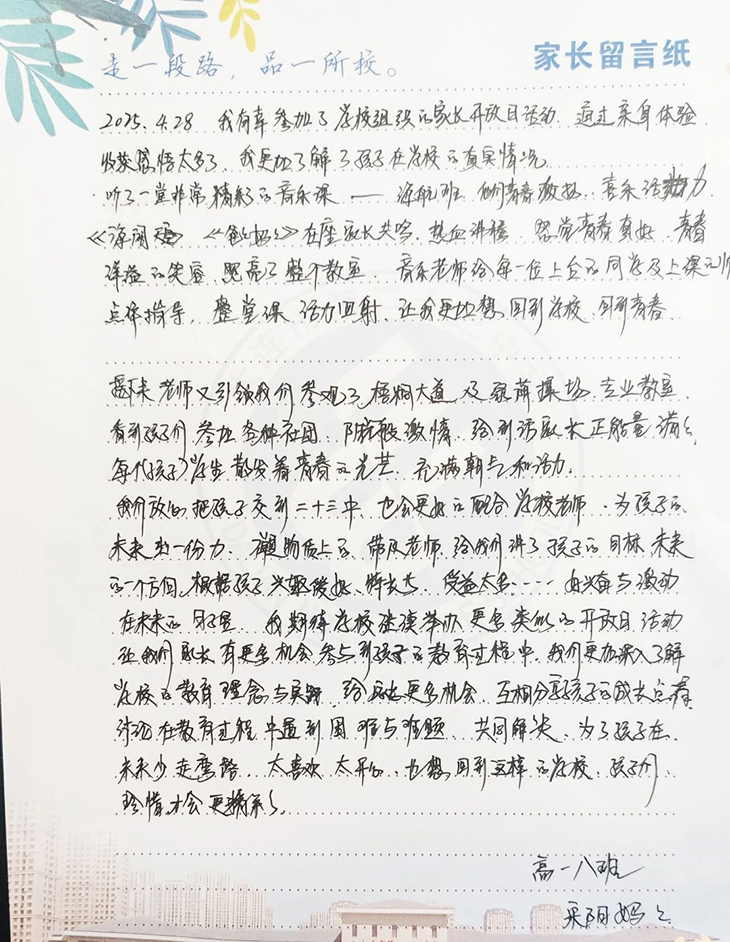 家长留言纸
走一段路，品一所校。
2025.4.28 我有幸参加了学校组织的家长开放日活动 通过亲身体验
收获 感悟太多了，我更加了解了孩子在学校的真实情况
听了一堂非常精彩的音乐课 —— 海航班 他们青春 音乐活 力
《海阔 》 在座家长共鸣，热血沸腾 感觉青春真好，青春
洋溢的笑容 照亮了整个教室 音乐老师给每一位上台的同学及上课的
点评指导，整堂课 活力四射，让我更地想 回到学校 回到青春
接下来 老师又引领我们 参观了 梧桐大道 及 操场 专业教室
看到孩子们 参加各种社团 激情 给到诸家长正能量满满
每代（孩子）学生 散发着青春的光芒 充满朝气和活力
我们放心 把孩子交到二十三中 也会更好的配合学校老师、为孩子的
未来出一份力， 带队老师 给我们讲了 孩子的目标 未来
的一个方向，根据孩子兴趣 特长 受益太多…… 兴奋与激动
在未来的日子里 我期待学校继续举办更多类似的开放日活动
让我们家长有更多机会参与到孩子的教育过程中，我们更加深入了解
学校的教育理念与实践 给 更多机会 互相分享孩子的成长点
讨论在教育过程中遇到困难与难题 共同解决 为了孩子在
未来少走弯路 太喜欢 太开心 也想回到这样的学校，孩子们
珍惜才会更精彩
高一八班
妈妈